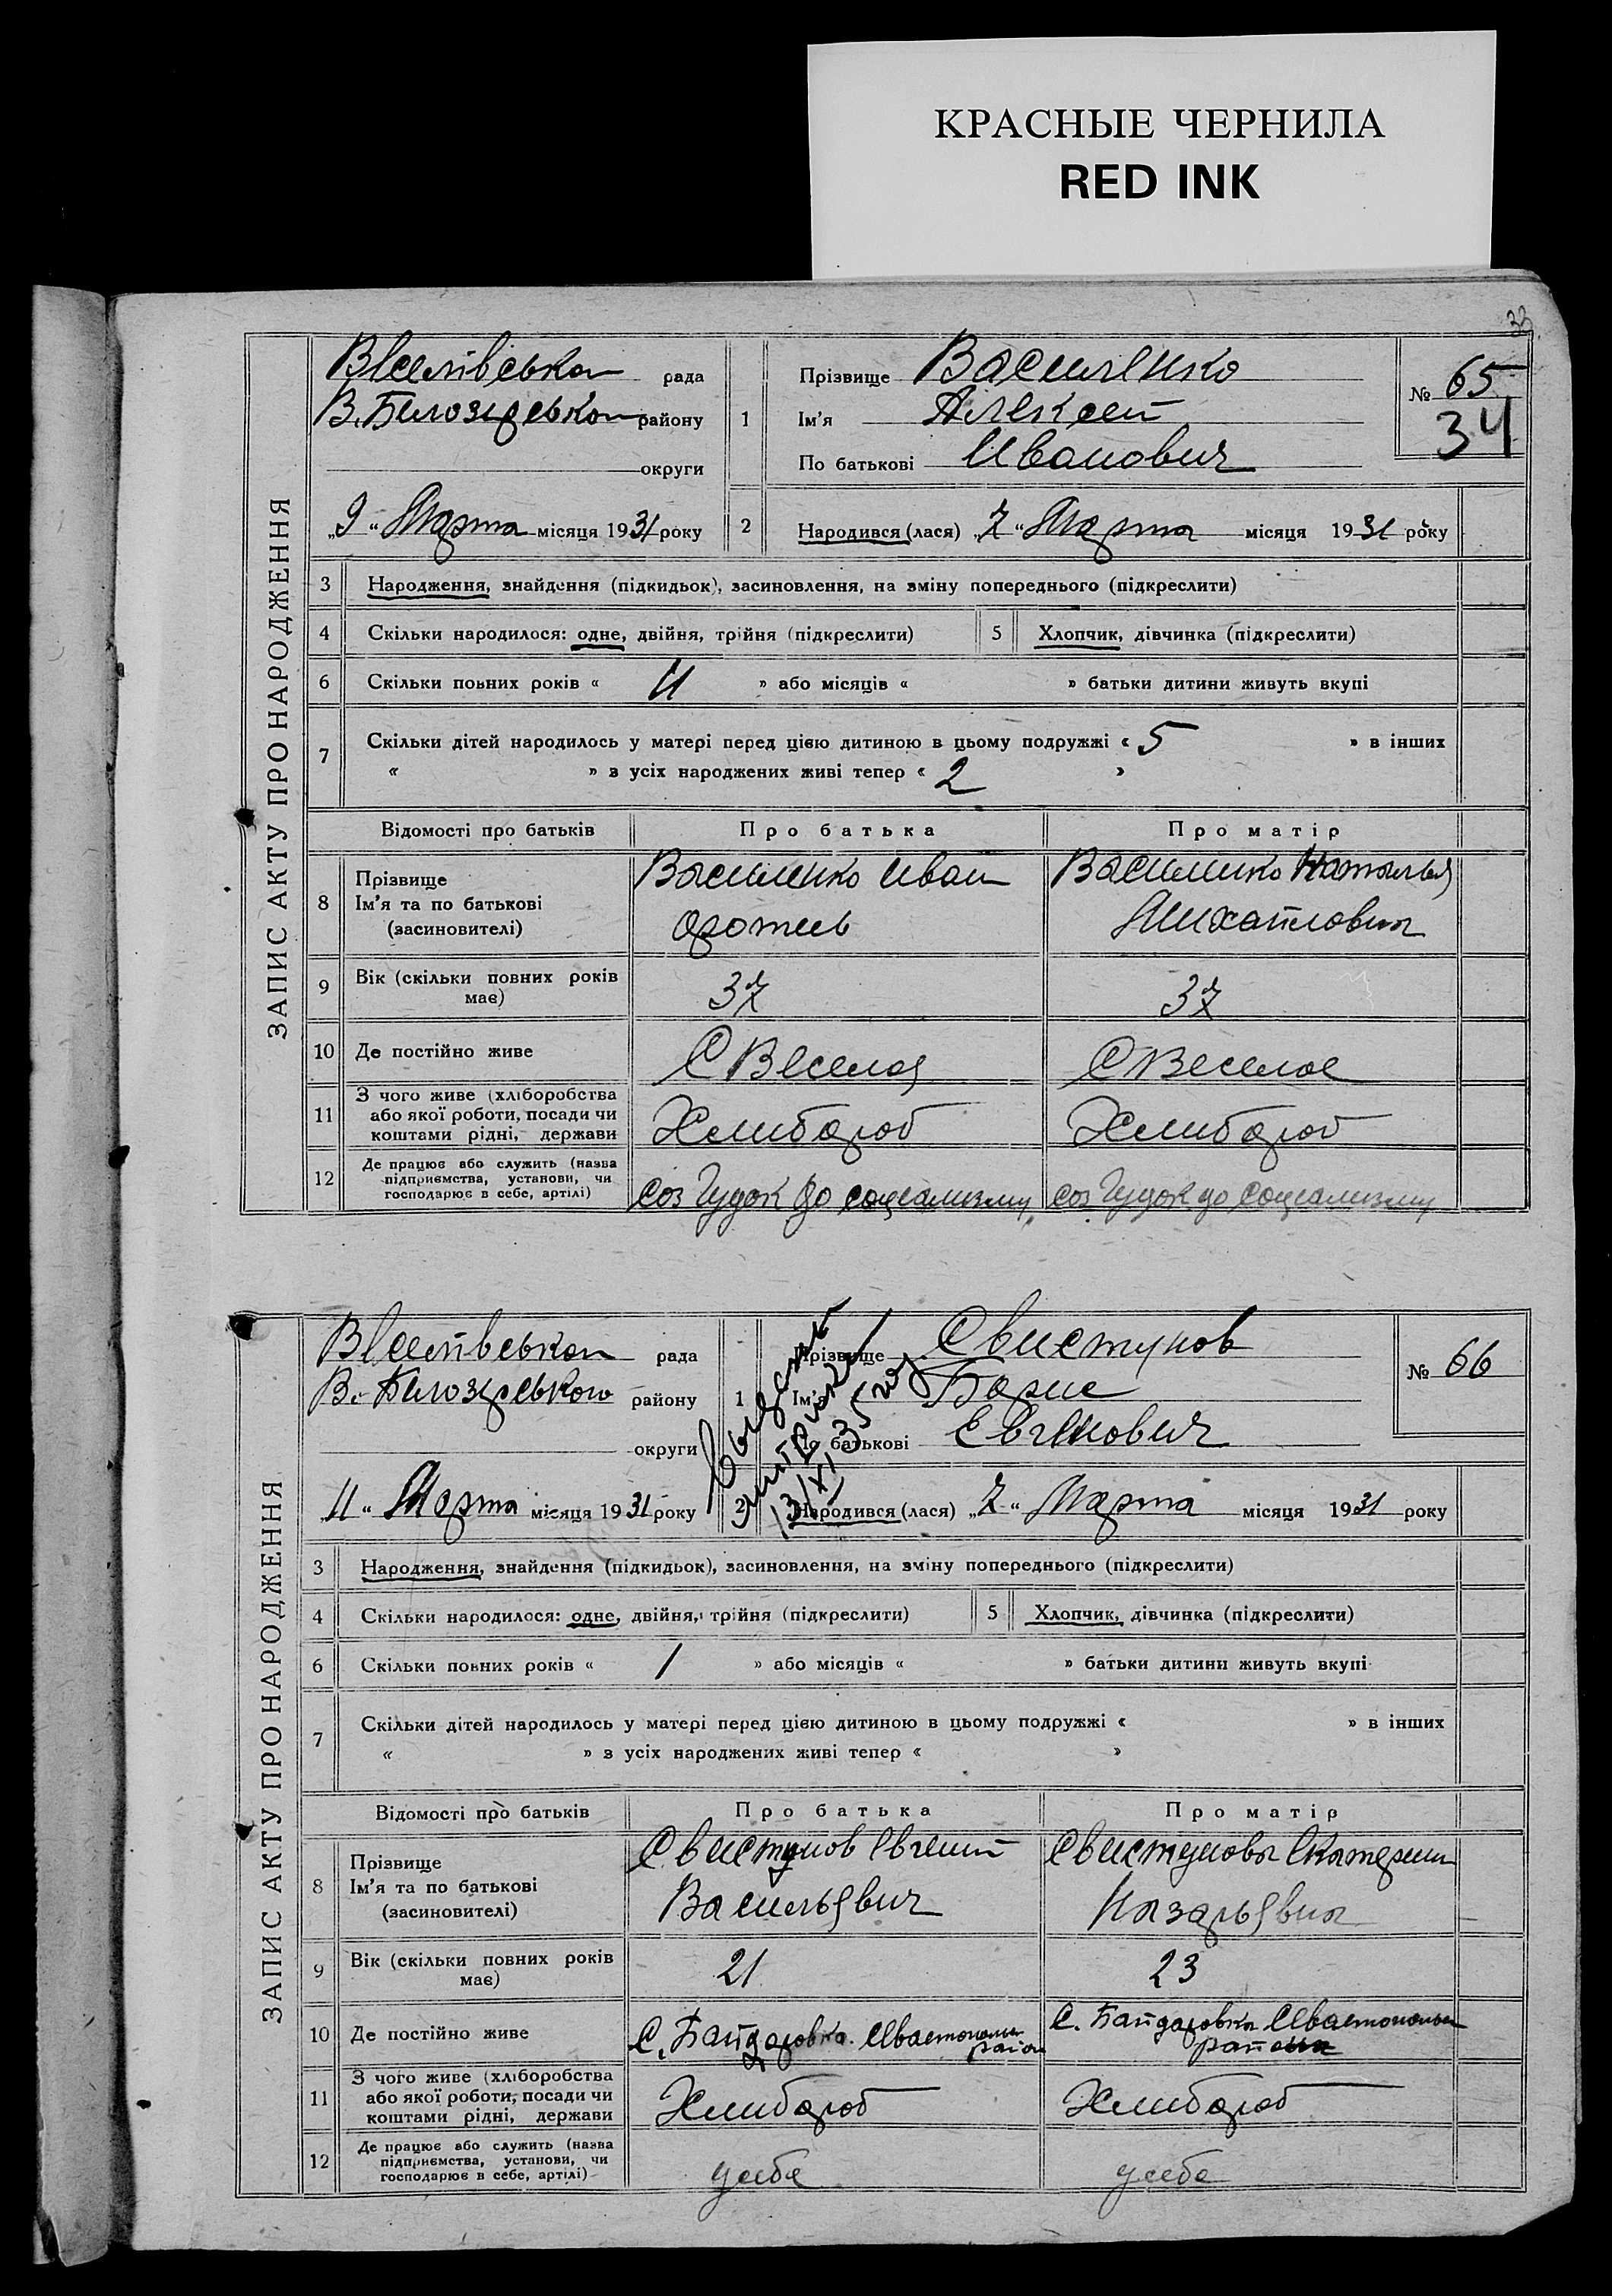 КРАСНЫЕ ЧЕРНИЛА
RED INK
33
ЗАПИС АКТУ ПРО НАРОДЖЕННЯ
Веселівська рада
В. Білозирського району
округи
„9“ Марта місяця 1931 року
1
Прізвище Василенко
Ім'я Алексей
По батькові Иванович
№ 65
34
2 Народився (лася) „7“ Марта місяця 1931 року
3 Народження, знайдення (підкидьок), засиновлення, на зміну попереднього (підкреслити)
4 Скільки народилося: одне, двійня, трійня (підкреслити) 5 Хлопчик, дівчинка (підкреслити)
6 Скільки повних років « 11 » або місяців « » батьки дитини живуть вкупі
7 Скільки дітей народилось у матері перед цією дитиною в цьому подружжі « 5 » в інших
« » з усіх народжених живі тепер « 2 »
Відомості про батьків Про батька Про матір
8 Прізвище Ім'я та по батькові (засновителі)
Василенко Иван
Василенко Наталья
Михайловна
9 Вік (скільки повних років має) 37 37
10 Де постійно живе С Веселоя С Веселое
11 З чого живе (хліборобства або якої роботи, посади чи коштами рідні, держави Хлибороб Хлибороб
12 Де працює або служить (назва підприємства, установи, чи господарює в себе, артілі) Соз Гудок до социализму Соз Гудок до социализму
ЗАПИС АКТУ ПРО НАРОДЖЕННЯ
Веселівська рада
В. Білозирського району
округи
„11“ Марта місяця 1931 року
1
Прізвище Свистунов
Ім'я Борис
По батькові Евгенович
№ 66
13/XI 35 год
2 Народився (лася) „7“ Марта місяця 1931 року
3 Народження, знайдення (підкидьок), засиновлення, на зміну попереднього (підкреслити)
4 Скільки народилося: одне, двійня, трійня (підкреслити) 5 Хлопчик, дівчинка (підкреслити)
6 Скільки повних років « 1 » або місяців « » батьки дитини живуть вкупі
7 Скільки дітей народилось у матері перед цією дитиною в цьому подружжі « » в інших
« » з усіх народжених живі тепер « »
Відомості про батьків Про батька Про матір
8 Прізвище Ім'я та по батькові (засиновителі)
Свистунов Евгений
Васильевич
Свистунова Екатерина
Назарьевна
9 Вік (скільки повних років має) 21 23
10 Де постійно живе С. Байдаровка С. Байдаровка
11 З чого живе (хліборобства або якої роботи, посади чи коштами рідні, держави Хлибороб Хлибороб
12 Де працює або служить (назва підприємства, установи, чи господарює в себе, артілі) у себе у себе